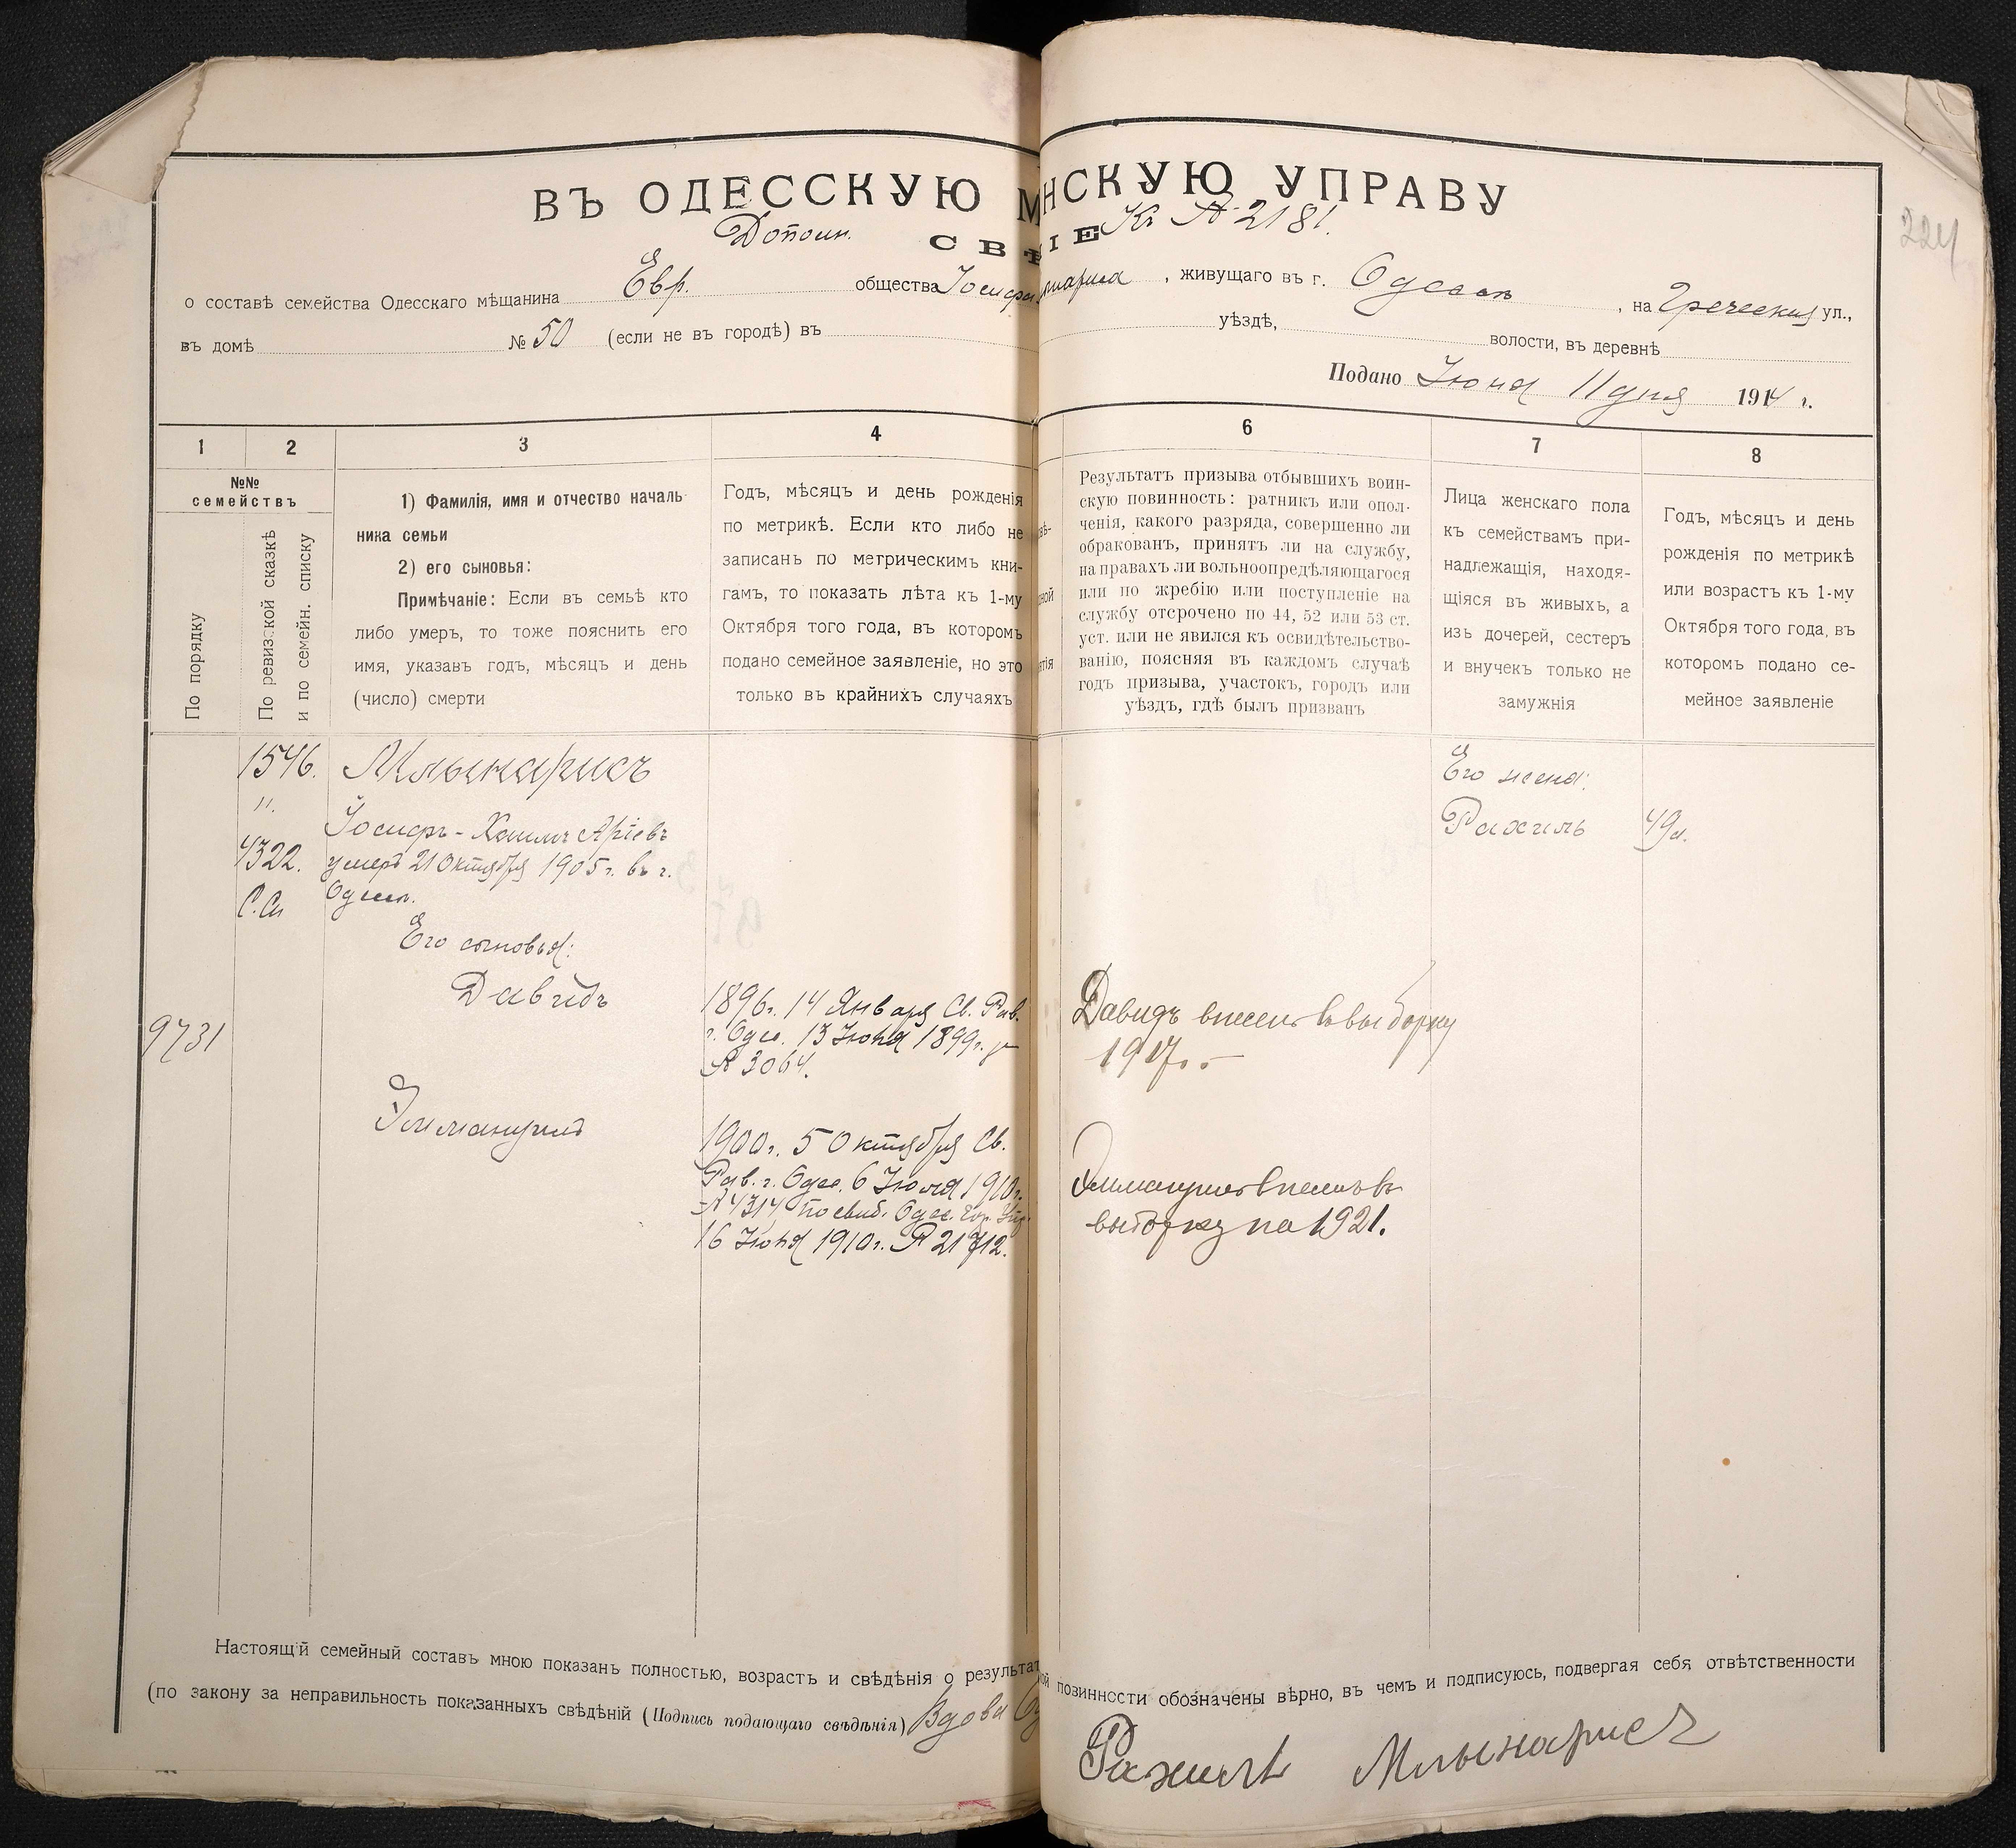 ВЪ ОДЕССКУЮ М НСКУЮ УПРАВУ
Дополн. СВѢ ІЕ Къ № 2181.
224
о составѣ семейства Одесскаго мѣщанина Евр. общества Іосифа , живущаго въ г. Одессѣ , на Греческой ул.,
въ домѣ № 50 (если не въ городѣ) въ уѣздѣ, волости, въ деревнѣ
Подано Іюня 11 дня 1914 г.
1 2 3 4 6 7 8
№№
семействъ
По порядку
По ревизской сказкѣ
и по семейн. списку
1) Фамилія, имя и отчество началь
ника семьи
2) его сыновья:
Примѣчаніе: Если въ семьѣ кто
либо умеръ, то тоже пояснить его
имя, указавъ годъ, мѣсяцъ и день
(число) смерти
Годъ, мѣсяцъ и день рожденія
по метрикѣ. Если кто либо не
записанъ по метрическимъ кни-
гамъ, то показать лѣта къ 1-му
Октября того года, въ которомъ
подано семейное заявленіе, но это
только въ крайнихъ случаяхъ
Результатъ призыва отбывшихъ воин-
скую повинность: ратникъ или опол-
ченія, какого разряда, совершенно ли
обракованъ, принятъ ли на службу,
на правахъ ли вольноопредѣляющагося
или по жребію или поступленіе на
службу отсрочено по 44, 52 или 53 ст.
уст. или не явился къ освидѣтельство-
ванію, поясняя въ каждомъ случаѣ
годъ призыва, участокъ, городъ или
уѣздъ, гдѣ былъ призванъ
Лица женскаго пола
къ семействамъ при-
надлежащія, находя-
щіяся въ живыхъ, а
изъ дочерей, сестеръ
и внучекъ только не
замужнія
Годъ, мѣсяцъ и день
рожденія по метрикѣ
или возрастъ къ 1-му
Октября того года, въ
которомъ подано се-
мейное заявленіе
1546.
"
4322.
С. Сп
Млынарисъ
Іосифъ-Хаимъ Аріевъ
умеръ 21 Октября 1905 г. въ г.
Одессѣ.
Его сыновья:
Давидъ
9731
1896 г. 14 Января Св. Рав.
г. Одес. 13 Іюня 1899 г.
№ 3064.
Эммануилъ
1900 г. 5 Октября Св.
Рав. г. Одес. 6 Іюля 1910 г.
№ 4314 по свид. Одес. Гор. Упр.
16 Іюня 1910 г. № 21712.
Давидъ внесенъ въ выборку
1917 г.
Эммануилъ внесенъ въ
выборку на 1921.
Его жена:
Рахиль 49 л.
Настоящій семейный составъ мною показанъ полностью, возрастъ и свѣдѣнія о результат ой повинности обозначены вѣрно, въ чемъ и подписуюсь, подвергая себя отвѣтственности
(по закону за неправильность показанныхъ свѣдѣній (Подпись подающаго свѣдѣнія) Вдова
Рахиль Млынарисъ